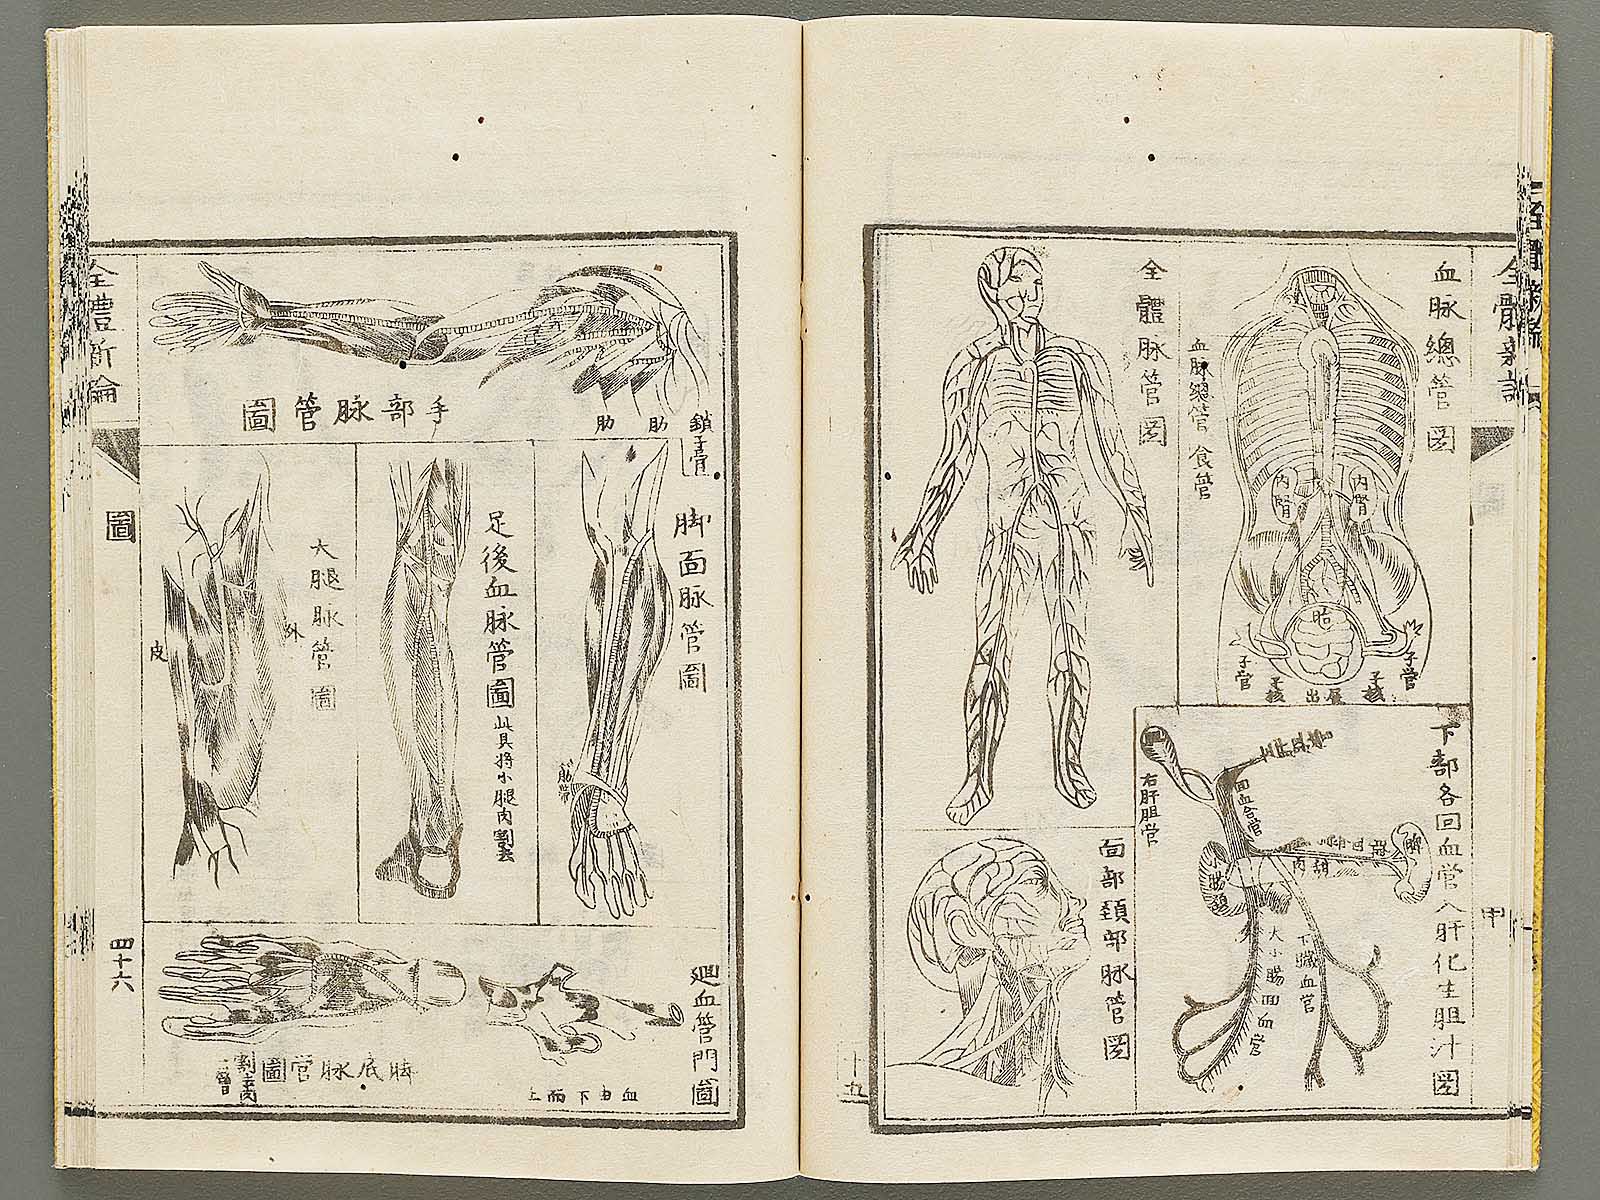 全體新論
血脉總管圖
内腎
内腎
胎
子管
子核
出尿
子核
子管
全體脉管圖
血脉總管
食管
下部各回血管入肝化生胆汁圖
右肝胆管
回血合管
大小腸回血管
下臓血管
面部頚部脉管圖
甲
十五
手部脉管圖
鎖子骨
肋
肋
脚面脉管圖
足後血脉管圖
此具將小腿肉割去
大腿脉管圖
外
皮
廻血管門圖
血由下而上
脚底脉管圖
割去肉
全體新論
圖
四十六